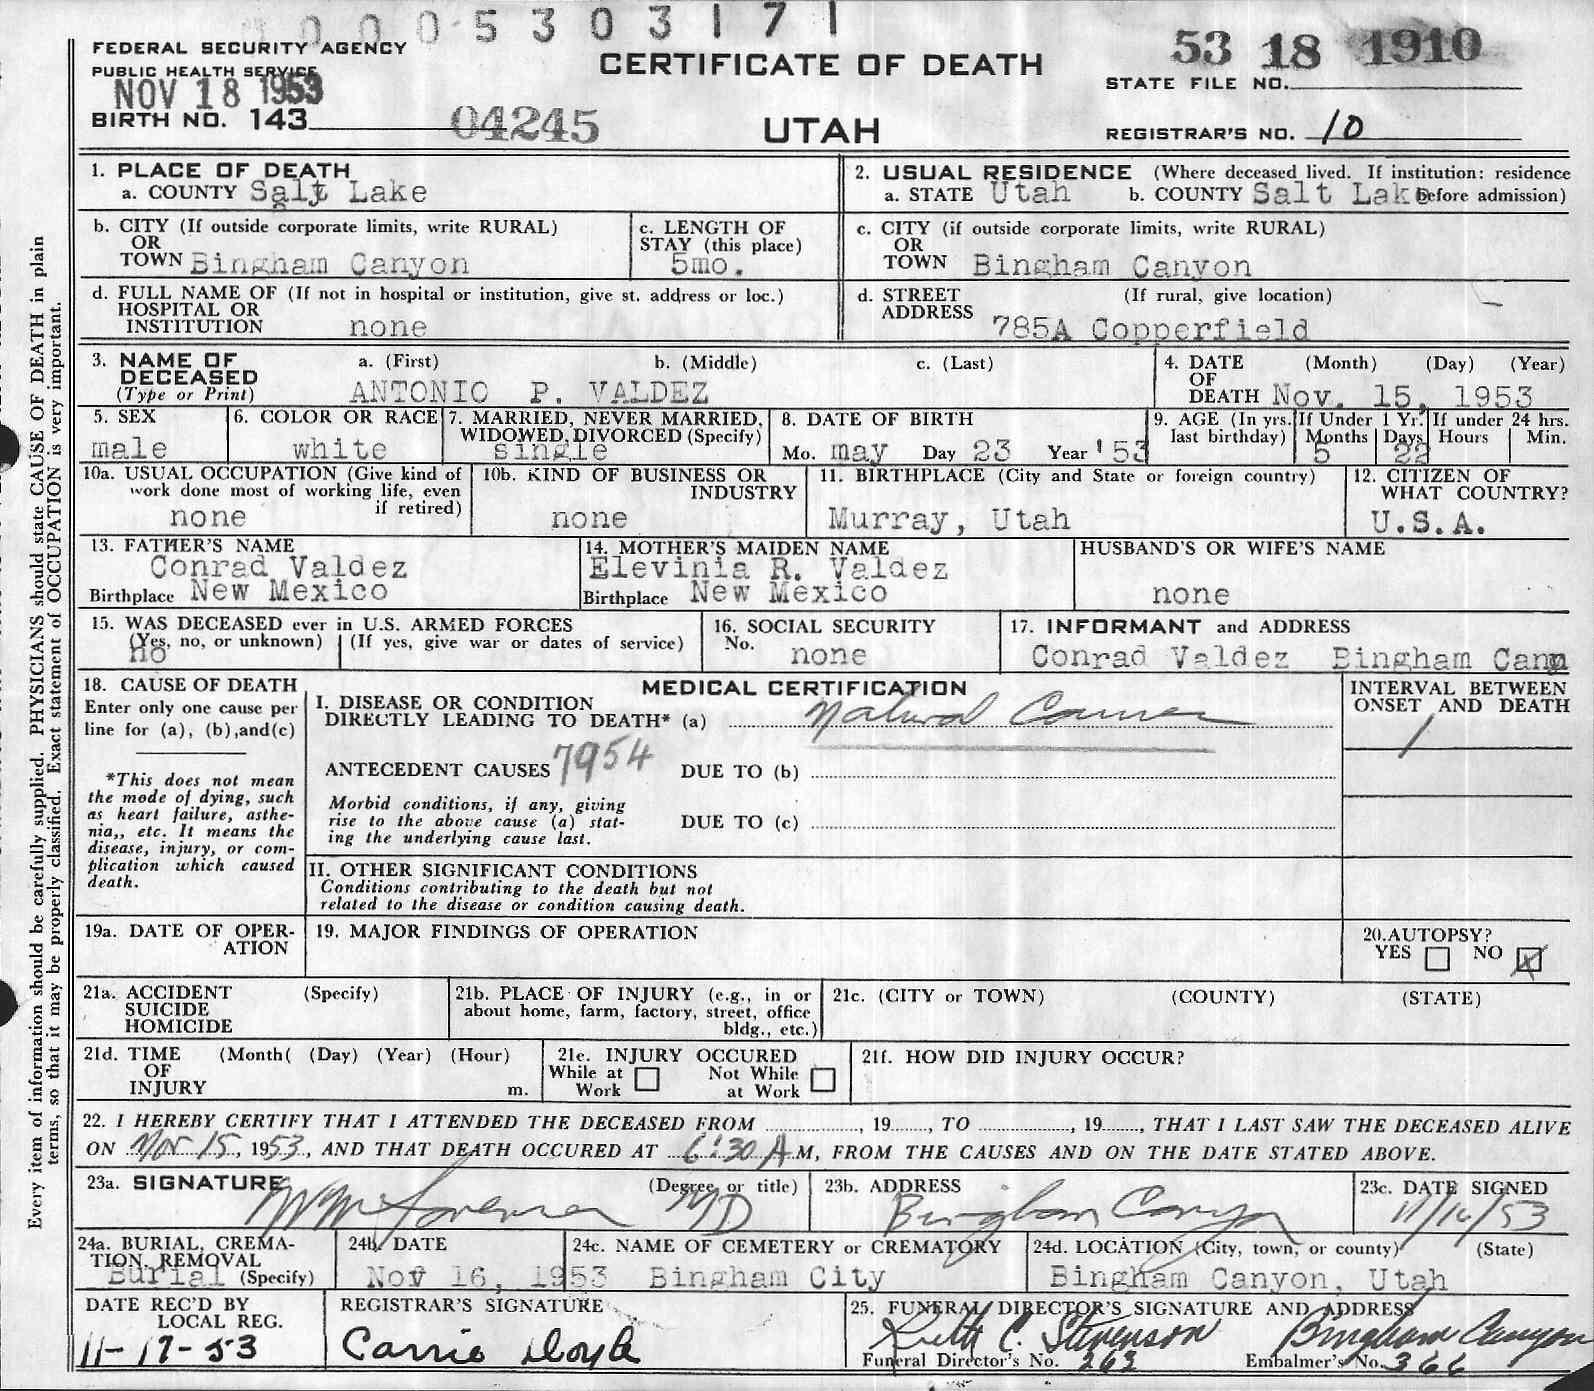 0005303171
FEDERAL SECURITY AGENCY
PUBLIC HEALTH SERVICE
NOV 18 1953
BIRTH NO. 143 04245
CERTIFICATE OF DEATH
UTAH
53 18 1910
STATE FILE NO.
REGISTRAR'S NO. 10
Every item of information should be carefully supplied. PHYSICIANS should state CAUSE OF DEATH in plain
terms, so that it may be properly classified. Exact statement of OCCUPATION is very important.
1. PLACE OF DEATH
a. COUNTY Salt Lake
2. USUAL RESIDENCE (Where deceased lived. If institution: residence
a. STATE Utah b. COUNTY Salt Lake before admission)
b. CITY (If outside corporate limits, write RURAL)
OR
TOWN Bingham Canyon
c. LENGTH OF
STAY (this place)
5mo.
c. CITY (if outside corporate limits, write RURAL)
OR
TOWN Bingham Canyon
d. FULL NAME OF (If not in hospital or institution, give st. address or loc.)
HOSPITAL OR
INSTITUTION none
d. STREET (If rural, give location)
ADDRESS
785A Copperfield
3. NAME OF a. (First) b. (Middle) c. (Last)
DECEASED
(Type or Print) ANTONIO P. VALDEZ
4. DATE (Month) (Day) (Year)
OF
DEATH Nov. 15, 1953
5. SEX
male
6. COLOR OR RACE
white
7. MARRIED, NEVER MARRIED,
WIDOWED, DIVORCED (Specify)
single
8. DATE OF BIRTH
Mo. may Day 23 Year '53
9. AGE (In yrs.
last birthday)
If Under 1 Yr.
Months Days
5 22
If under 24 hrs.
Hours Min.
10a. USUAL OCCUPATION (Give kind of
work done most of working life, even
if retired)
none
10b. KIND OF BUSINESS OR
INDUSTRY
none
11. BIRTHPLACE (City and State or foreign country)
Murray, Utah
12. CITIZEN OF
WHAT COUNTRY?
U.S.A.
13. FATHER'S NAME
Conrad Valdez
Birthplace New Mexico
14. MOTHER'S MAIDEN NAME
Elevinia R. Valdez
Birthplace New Mexico
HUSBAND'S OR WIFE'S NAME
none
15. WAS DECEASED ever in U.S. ARMED FORCES
(Yes, no, or unknown) (If yes, give war or dates of service)
no
16. SOCIAL SECURITY
No.
none
17. INFORMANT and ADDRESS
Conrad Valdez Bingham Cany
18. CAUSE OF DEATH
Enter only one cause per
line for (a), (b),and(c)
*This does not mean
the mode of dying, such
as heart failure, asthe-
nia,, etc. It means the
disease, injury, or com-
plication which caused
death.
MEDICAL CERTIFICATION
I. DISEASE OR CONDITION
DIRECTLY LEADING TO DEATH* (a) Natural Causes
ANTECEDENT CAUSES 7954 DUE TO (b)
Morbid conditions, if any, giving
rise to the above cause (a) stat-
ing the underlying cause last.
DUE TO (c)
II. OTHER SIGNIFICANT CONDITIONS
Conditions contributing to the death but not
related to the disease or condition causing death.
INTERVAL BETWEEN
ONSET AND DEATH
19a. DATE OF OPER-
ATION
19. MAJOR FINDINGS OF OPERATION
20.AUTOPSY?
YES NO X
21a. ACCIDENT (Specify)
SUICIDE
HOMICIDE
21b. PLACE OF INJURY (e.g., in or
about home, farm, factory, street, office
bldg., etc.)
21c. (CITY or TOWN) (COUNTY) (STATE)
21d. TIME (Month( (Day) (Year) (Hour)
OF
INJURY m.
21e. INJURY OCCURED
While at Not While
Work at Work
21f. HOW DID INJURY OCCUR?
22. I HEREBY CERTIFY THAT I ATTENDED THE DECEASED FROM , 19 , TO , 19 , THAT I LAST SAW THE DECEASED ALIVE
ON Nov 15, 1953, AND THAT DEATH OCCURED AT 6:30 A M, FROM THE CAUSES AND ON THE DATE STATED ABOVE.
23a. SIGNATURE (Degree or title)
MD
23b. ADDRESS
Bingham Canyon
23c. DATE SIGNED
11/16/53
24a. BURIAL, CREMA-
TION, REMOVAL
Burial (Specify)
24b. DATE
Nov 16, 1953
24c. NAME OF CEMETERY or CREMATORY
Bingham City
24d. LOCATION (City, town, or county) (State)
Bingham Canyon, Utah
DATE REC'D BY
LOCAL REG.
11-17-53
REGISTRAR'S SIGNATURE
Carrie Doyle
25. FUNERAL DIRECTOR'S SIGNATURE AND ADDRESS
Keith C. Stevenson Bingham Canyon
Funeral Director's No. 263 Embalmer's No. 366